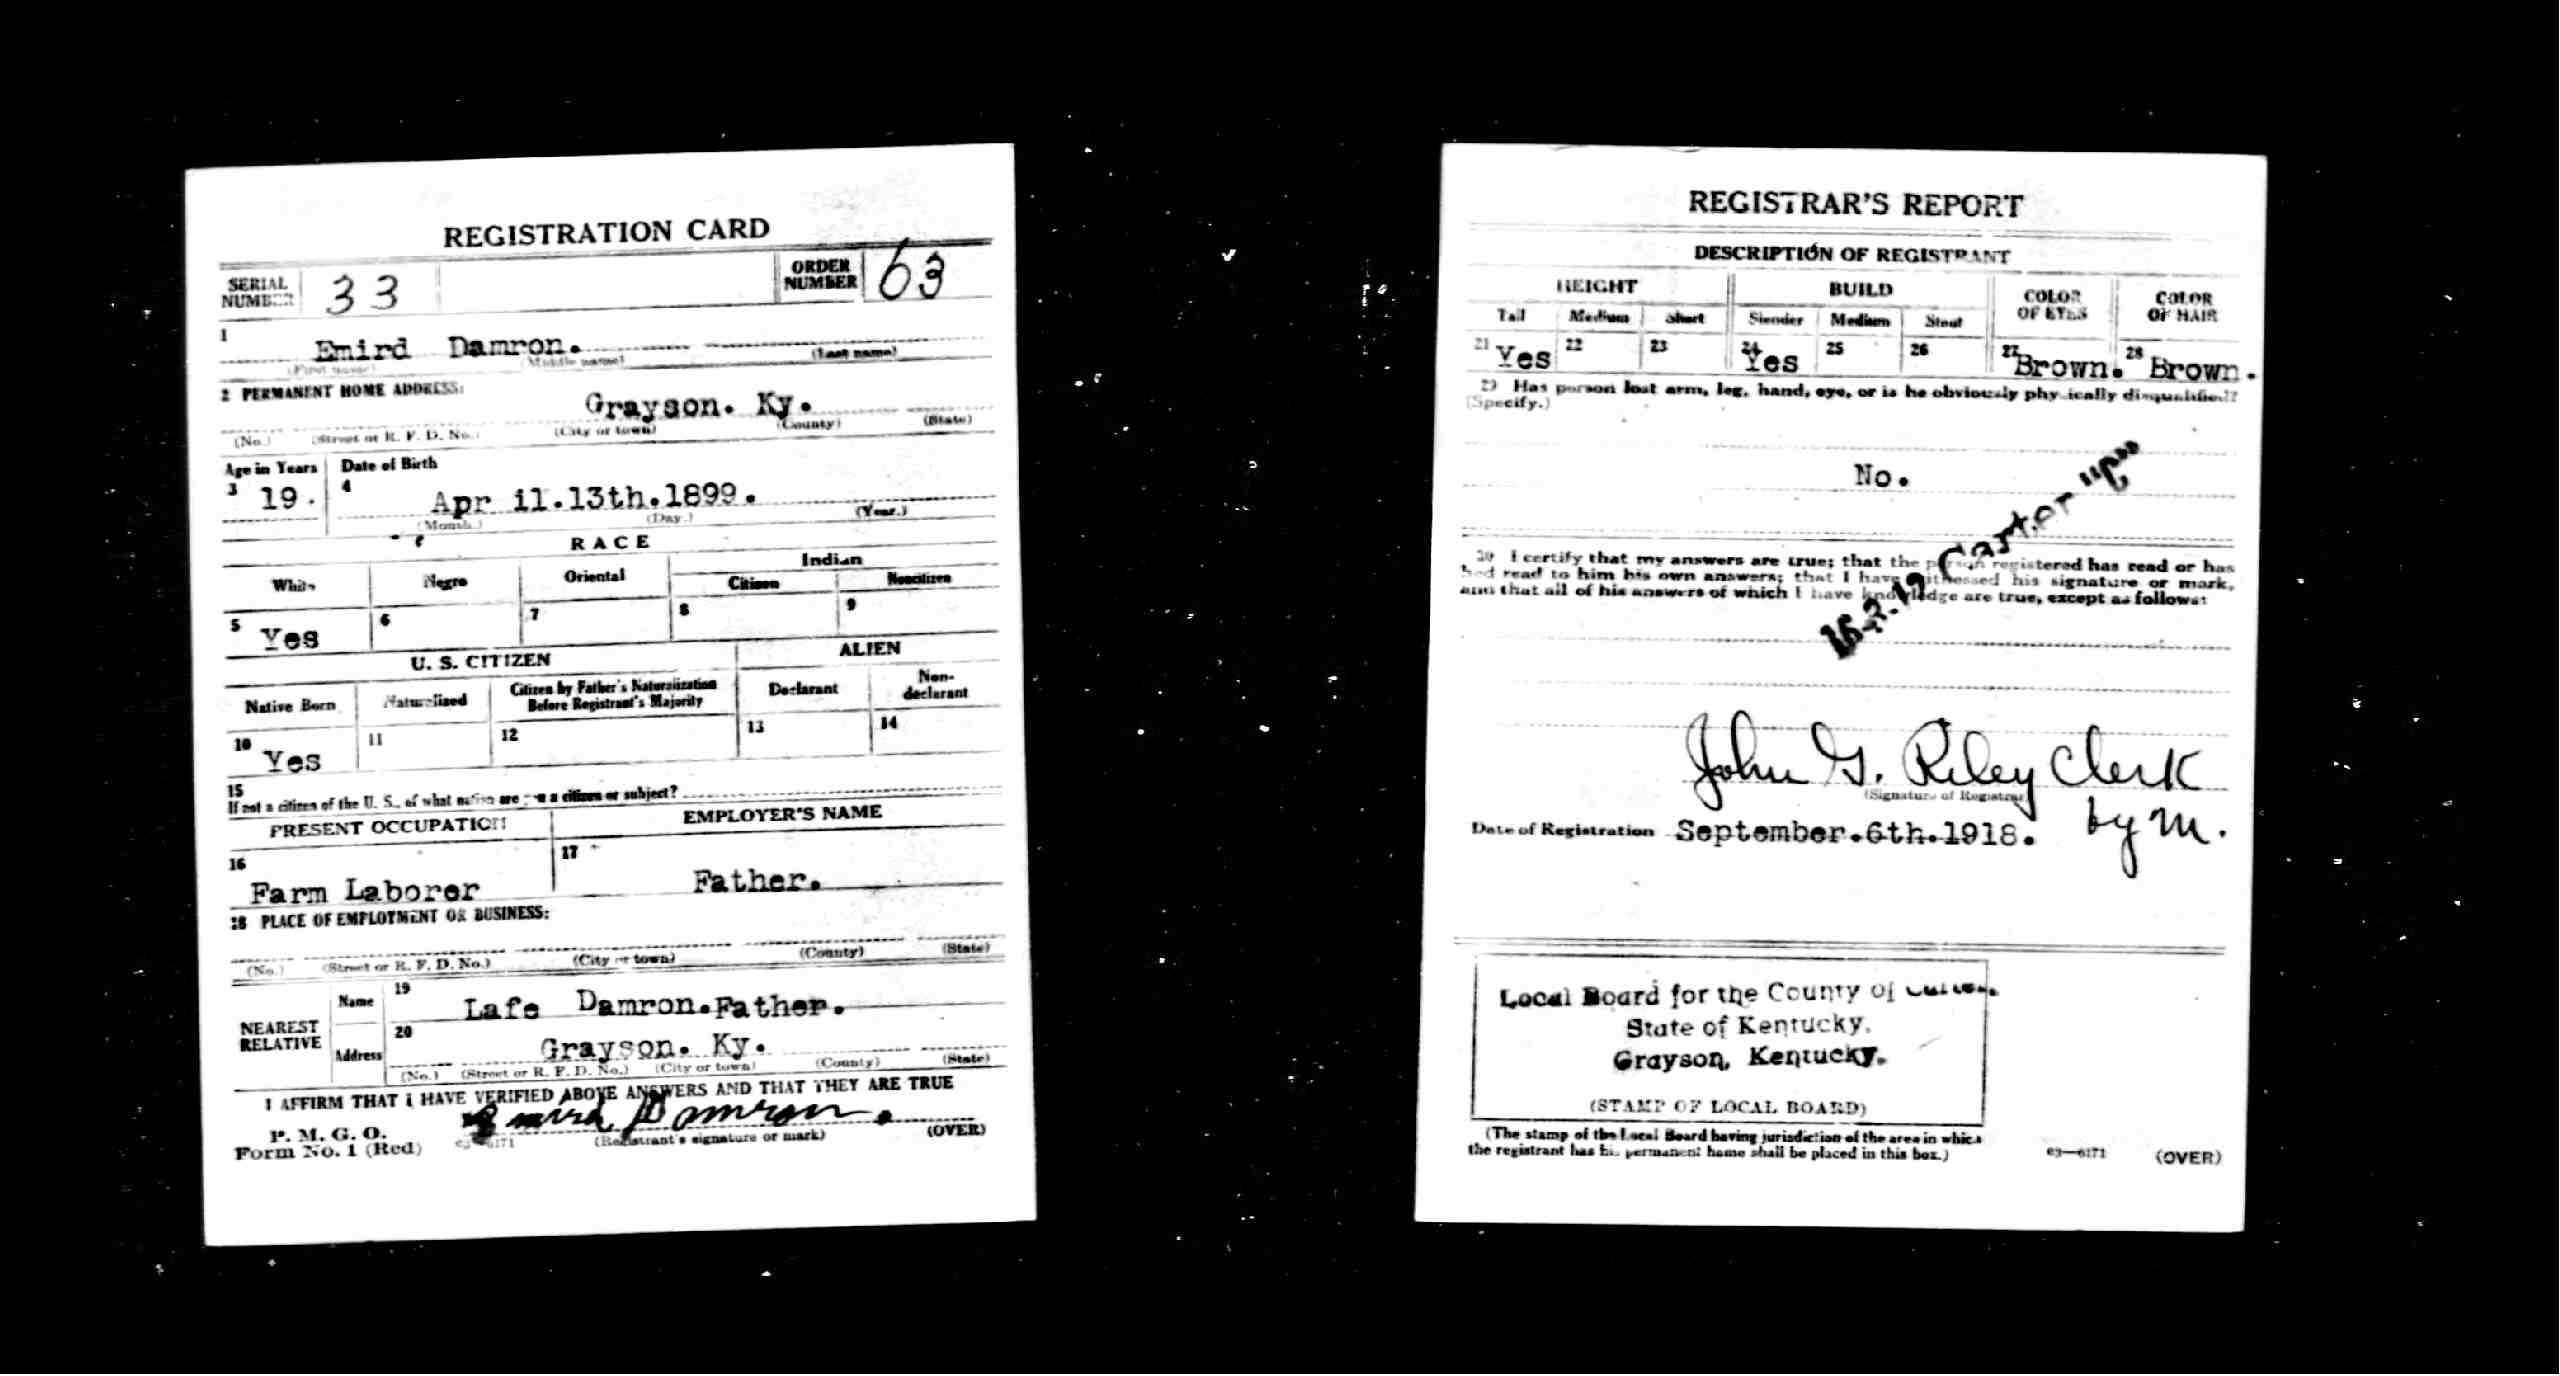 REGISTRATION CARD
SERIAL NUMBER 33 ORDER NUMBER 63
1 Emird Damron.
(First name) (Middle name) (Last name)
2 PERMANENT HOME ADDRESS:
Grayson. Ky.
(No.) (Street or R. F. D. No.) (City or town) (County) (State)
Age in Years Date of Birth
3 19. 4 Apr il.13th.1899.
(Month.) (Day.) (Year.)
RACE
White Negro Oriental Indian
Citizen Noncitizen
5 Yes 6 7 8 9
U. S. CITIZEN ALIEN
Native Born Naturalized Citizen by Father's Naturalization Before Registrant's Majority Declarant Non-declarant
10 Yes 11 12 13 14
15
If not a citizen of the U. S., of what nation are you a citizen or subject?
PRESENT OCCUPATION EMPLOYER'S NAME
16 Farm Laborer 17 Father.
18 PLACE OF EMPLOYMENT OR BUSINESS:
(No.) (Street or R. F. D. No.) (City or town) (County) (State)
NEAREST RELATIVE
Name 19 Lafe Damron.Father.
Address 20 Grayson. Ky.
(No.) (Street or R. F. D. No.) (City or town) (County) (State)
I AFFIRM THAT I HAVE VERIFIED ABOVE ANSWERS AND THAT THEY ARE TRUE
P. M. G. O.
Form No. 1 (Red) Emird Damron.
03—6171 (Registrant's signature or mark) (OVER)
REGISTRAR'S REPORT
DESCRIPTION OF REGISTRANT
HEIGHT BUILD COLOR OF EYES COLOR OF HAIR
Tall Medium Short Slender Medium Stout
21 Yes 22 23 24 Yes 25 26 27 Brown. 28 Brown.
29 Has person lost arm, leg, hand, eye, or is he obviously physically disqualified?
(Specify.)
No.
30 I certify that my answers are true; that the person registered has read or has
had read to him his own answers; that I have witnessed his signature or mark,
and that all of his answers of which I have knowledge are true, except as follows:
16-2-19 Carter "C"
John G. Riley Clerk
(Signature of Registrar)
by M.
Date of Registration September.6th.1918.
Local Board for the County of
State of Kentucky.
Grayson, Kentucky.
(STAMP OF LOCAL BOARD)
(The stamp of the Local Board having jurisdiction of the area in which
the registrant has his permanent home shall be placed in this box.)
03—6171 (OVER)